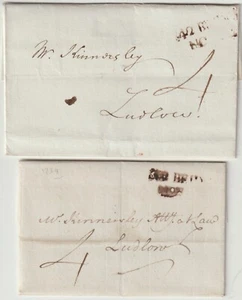 Mr. Kinnersley
4
Ludlow
Mr. Kinnersley Atty. at Law
4
Ludlow